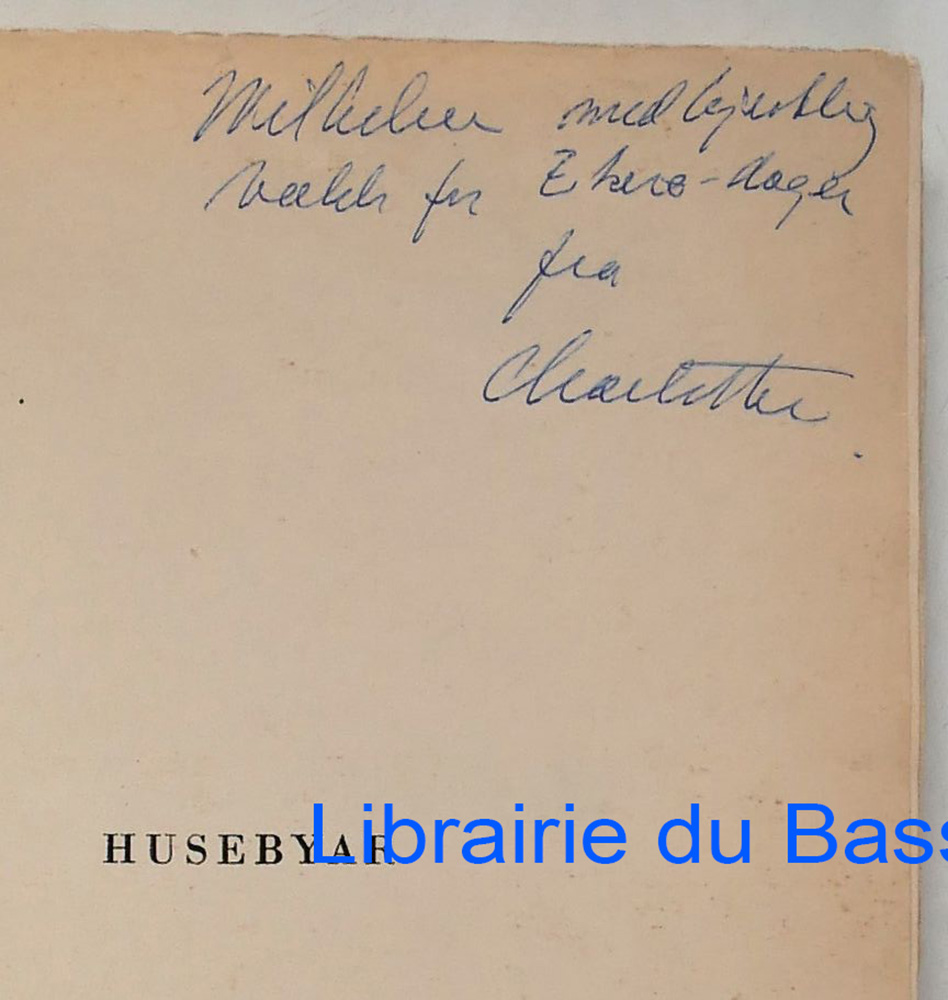 Wilhelm med hjertelig
takk for Ekerö-dager
fra
Charlotte
HUSEBYAR
Librairie du Bass